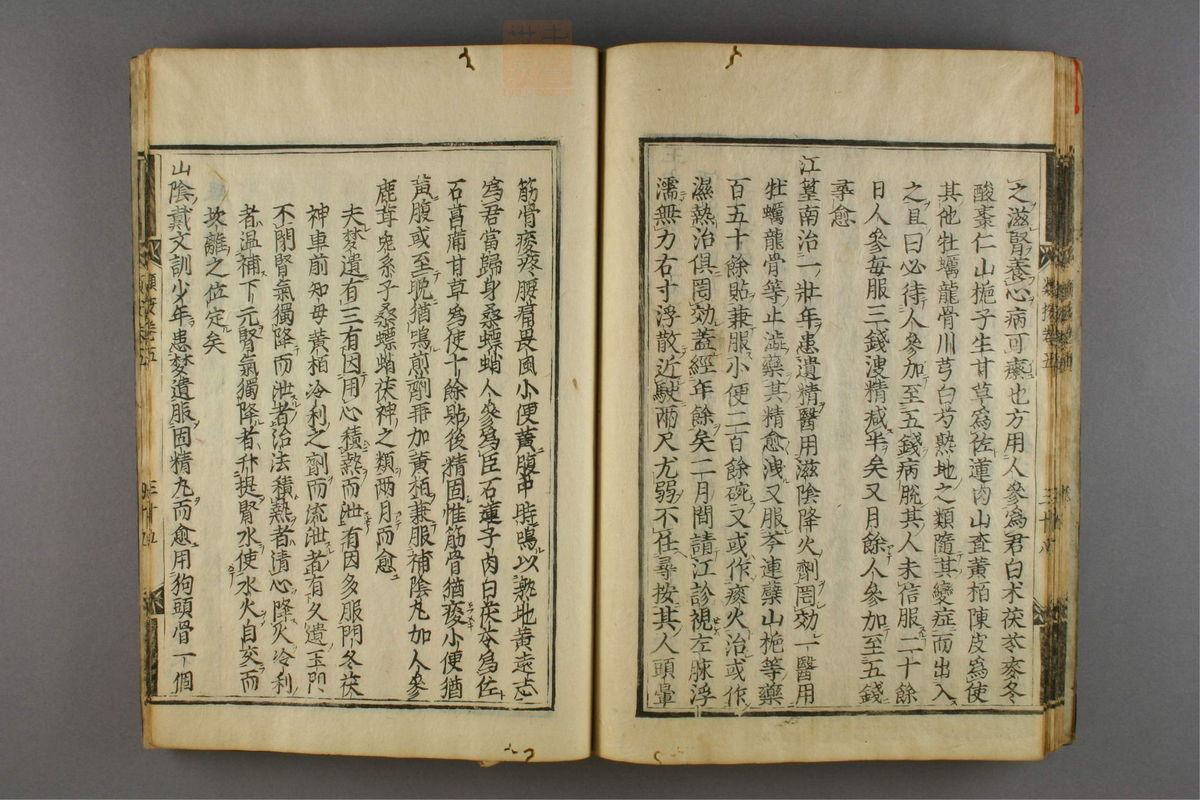 之滋腎養心病可瘳也方用人參爲君白术茯苓麥冬
酸棗仁山梔子生甘草爲佐蓮肉山查黃栢陳皮爲使
其他牡蠣龍骨川芎白芍熟地之類隨其變症而出入
之且曰必待人參加至五錢病脫其人未信服二十餘
日人參每服三錢洩精减半矣又月餘人參加至五錢
尋愈
江篁南治一壯年患遺精醫用滋陰降火劑罔効一醫用
牡蠣龍骨等止澁藥其精愈洩又服芩連蘗山梔等藥
百五十餘貼兼服小便二百餘碗又或作痰火治或作
濕熱治俱罔効蓋經年餘矣二月間請江診視左脉浮
濡無力右寸浮散近駛兩尺尤弱不任尋按其人頭暈
筋骨痠疼腰痛畏風小便黃腹中時鳴以熟地黃遠志
爲君當歸身桑螵蛸人參爲臣石蓮子肉白茯苓爲佐
石菖蒲甘草爲使十餘貼後精固惟筋骨猶痠小便猶
黃腹或至晩猶鳴煎劑再加黃栢兼服補陰丸加人參
鹿茸兎糸子桑螵蛸茯神之類兩月而愈
夫夢遺有三有因用心積熱而泄有因多服門冬茯
神車前知母黃栢冷利之劑而流泄者有久遺玉門
不閉腎氣獨降而泄者治法積熱者清心降火冷利
者溫補下元腎氣獨降者升提腎水使水火自交而
坎離之位定矣
山陰戴文訓少年患夢遺服固精丸而愈用狗頭骨一個